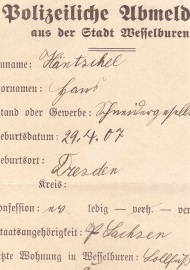 Polizeiliche Abmeld
aus der Stadt Wesselburen
uname: Häntschel
ornamen: Hans
tand oder Gewerbe: Schneidergesell
eburtsdatum: 29.4.07
eburtsort: Dresden
Kreis:
onfession: ev ledig — verh. — ver
aatsangehörigkeit: Sachsen
tzte Wohnung in Wesselburen: